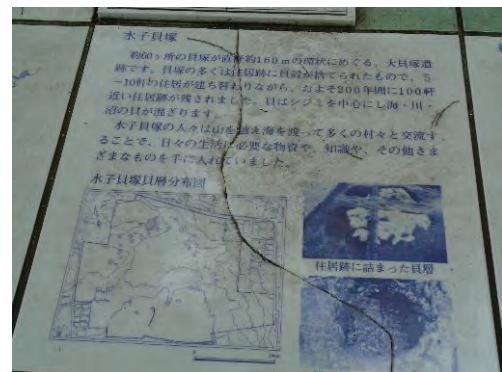 水子貝塚
約60ヶ所の貝塚が直径約160mの環状にめぐる、大貝塚遺
跡です。貝塚の多くは住居跡に貝殻が捨てられたもので、5
~10軒の住居が建ち替わりながら、およそ200年間に100軒
近い住居跡が残されました。貝はシジミを中心にし海・川・
沼の貝が混ざります。
水子貝塚の人々は山を越え海を渡って多くの村々と交流す
ることで、日々の生活に必要な物資や、知識や、その他さま
ざまなものを手に入れていました。
水子貝塚貝層分布図
住居跡に詰まった貝層